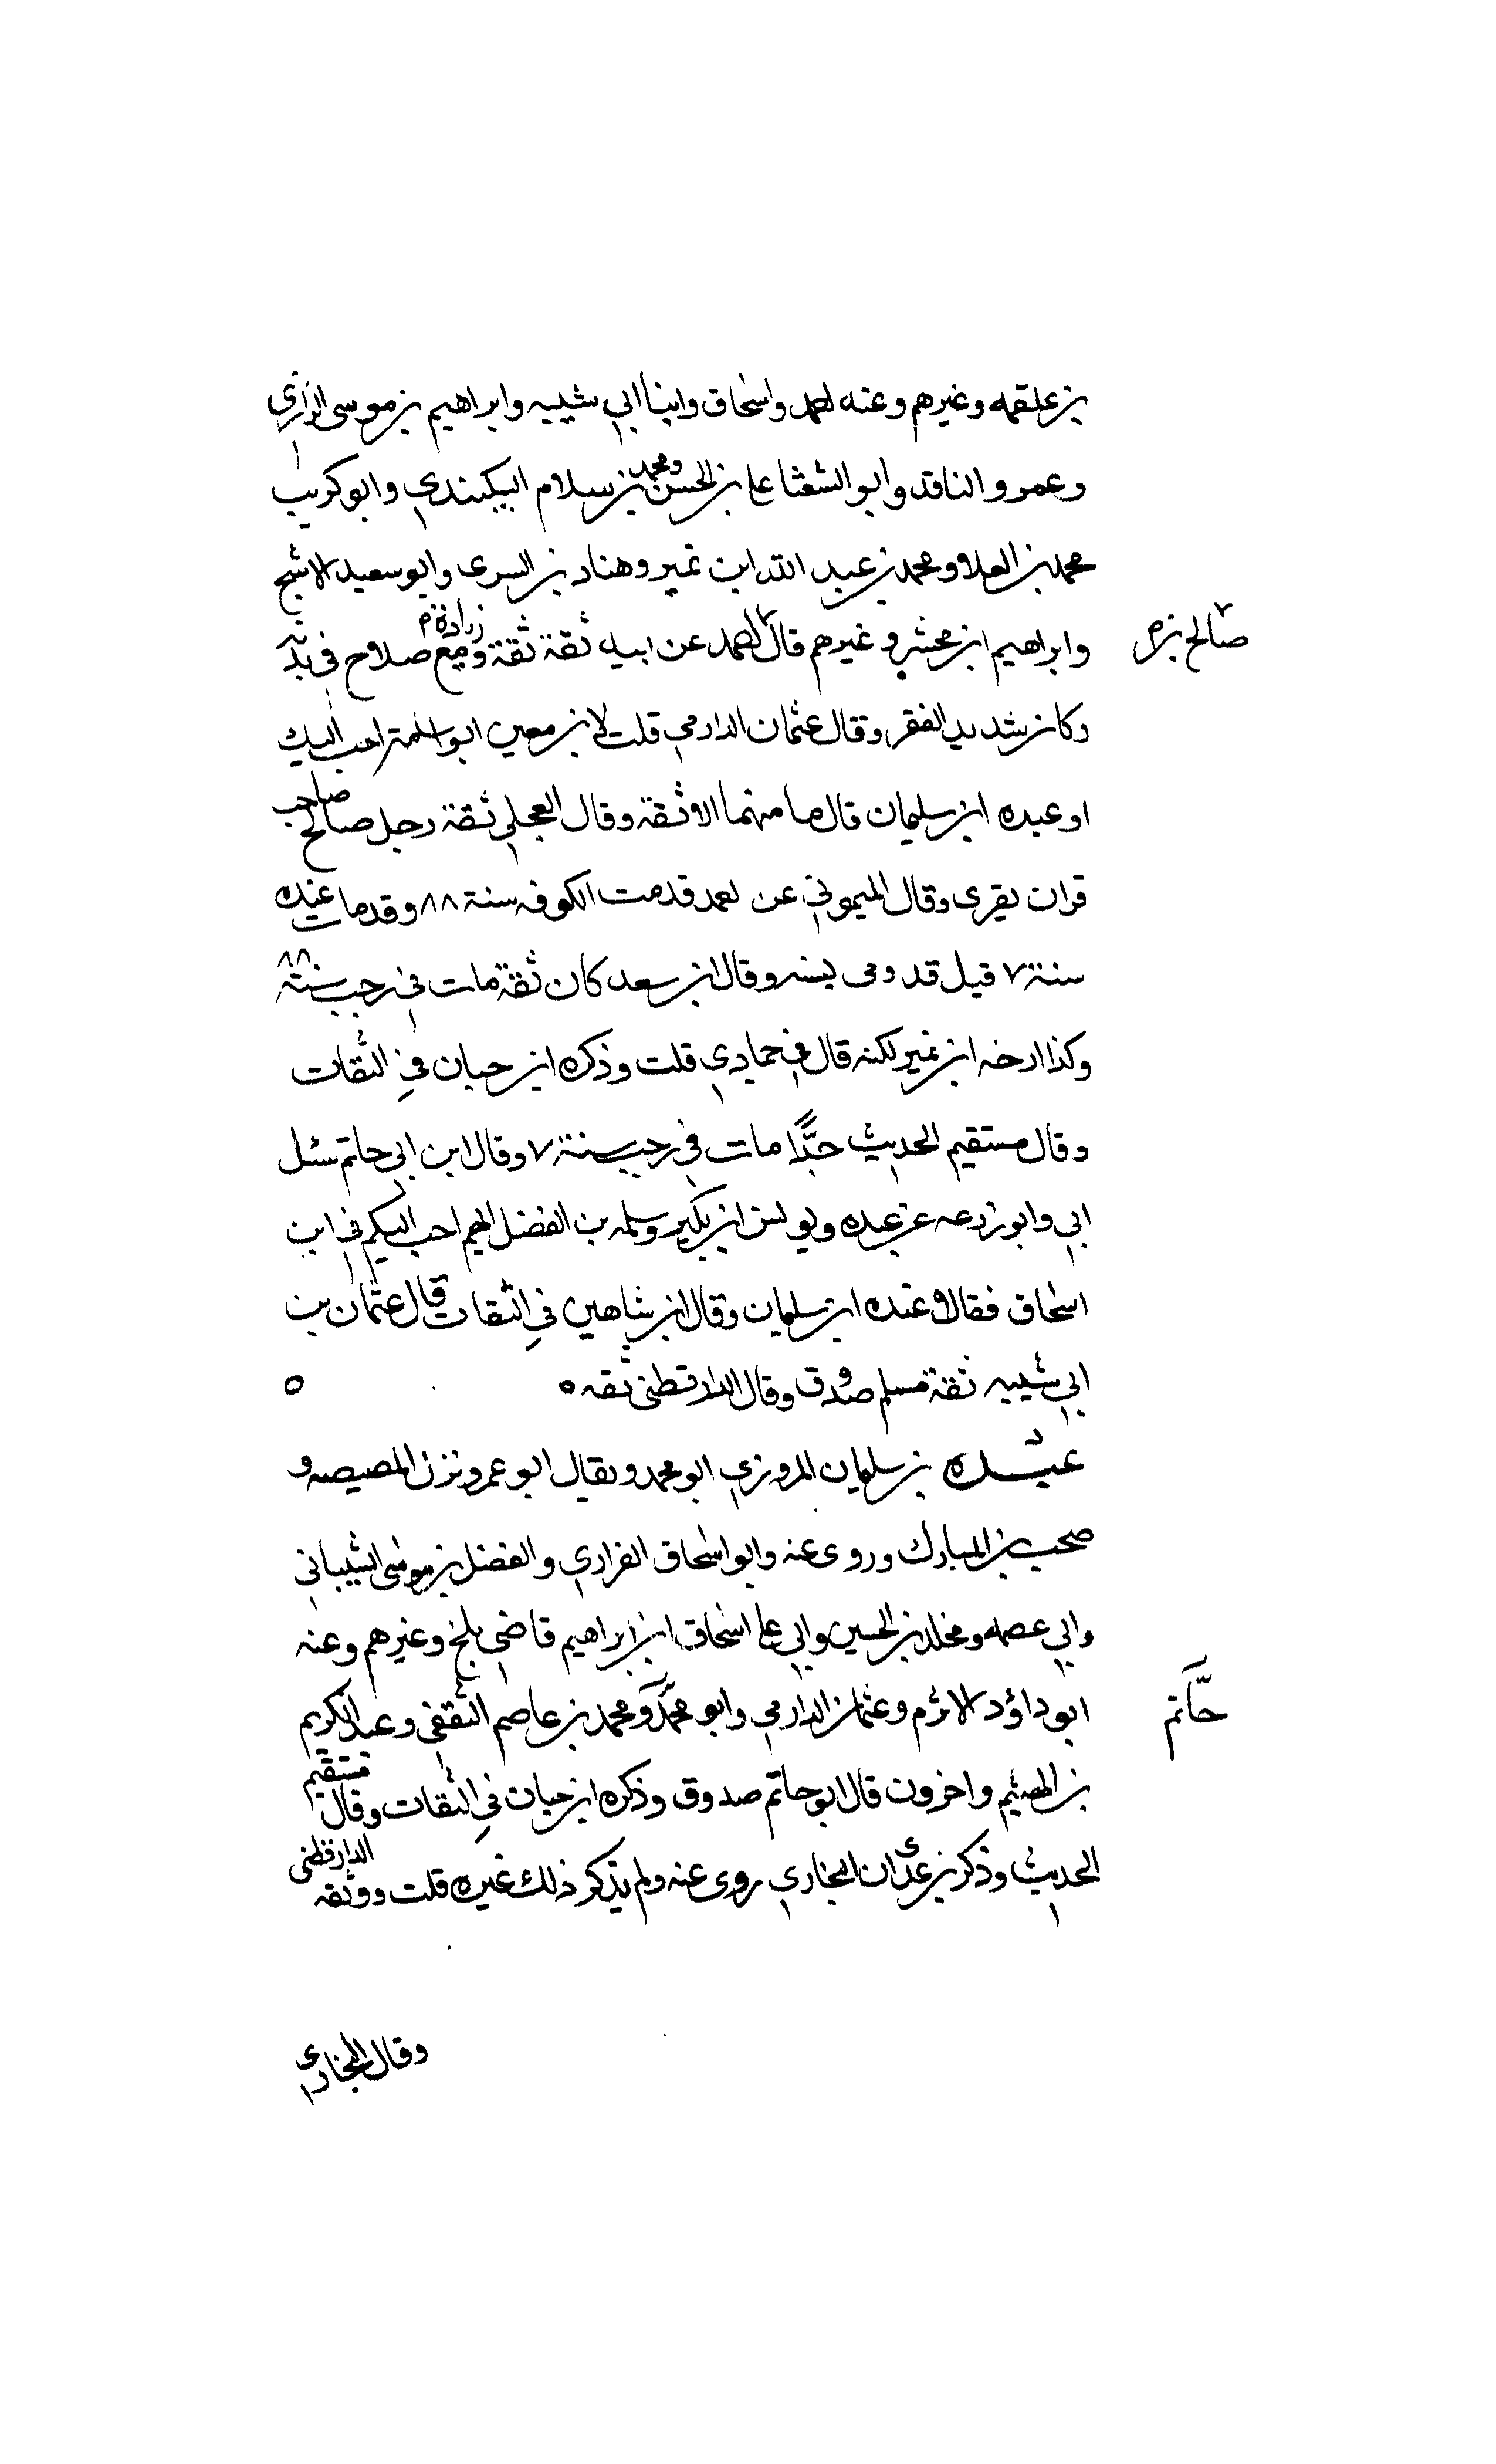 بن علقمه وغيرهم وعنه احمد واسحاق وابنا ابي شيبه وابراهيم بن موسى الرازي
وعمرو الناقد وابو الشعثا علي بن الحسن ومحمد بن سلام البيكندي وابو كريب
محمد بن العلا ومحمد بن عبد الله ابن نمير وهناد بن السرى وابو سعيد الاشج
وابراهيم ابن محشر وغيرهم قال صالح بن احمد عن ابيه ثقة ثقة وزيادة مع صلاح في بدنه
وكان شديد الفقر وقال عثمان الدارمي قلت لابن معين ابو اسلمة احب اليك
او عبده ابن سليمان قال ما منهما الا ثقة وقال العجلي ثقة رجل صالح صاحب
قران يقرى وقال الميموني عن احمد قدمت الكوفه سنة ٨٨ وقد مات عبده
سنة ٧ قبل قدومى بسنه وقال ابن سعد كان ثقة مات في رجب سنة ٨٨
وكذا ارخه ابن نمير لكنه قال في جمادي قلت وذكره ابن حبان في الثقات
وقال مستقيم الحديث جدًّا مات في رجب سنة ٧ وقال ابن ابي حاتم سئل
ابي وابو زرعه عن عبده ويونس ابن بكير وسلمه بن الفضل ايهم احب اليكم في ابن
اسحاق فقالا عبده ابن سليمان وقال ابن شاهين في الثقات قال عثمان بن
ابي شيبه ثقة مسلم صدوق وقال الدارقطنى ثقه ه ه
عبده بن سليمان المروزي ابو محمد ويقال ابو عمرو نزل المصيصه و
صحب بن المبارك وروى عنه وابو اسحاق الفزاري والفضل بن موسى الشيباني
وابي عصمه ومخلد بن الحسين وابي علي اسحاق ابن ابراهيم قاضي بلخ وغيرهم وعنه
ابو داؤد الاثرم وعثمان الدارمي وابو حاتم ومحمد بن عاصم الثقفي وعبد الكريم
بن الهيثم واخرون قال ابو حاتم صدوق وذكره ابن حبان في الثقات وقال مستقيم
الحديث وذكر بن عدى ان البخاري روى عنه ولم يذكر ذلك غيره قلت ووثقه الدارقطنى
وقال البخاري